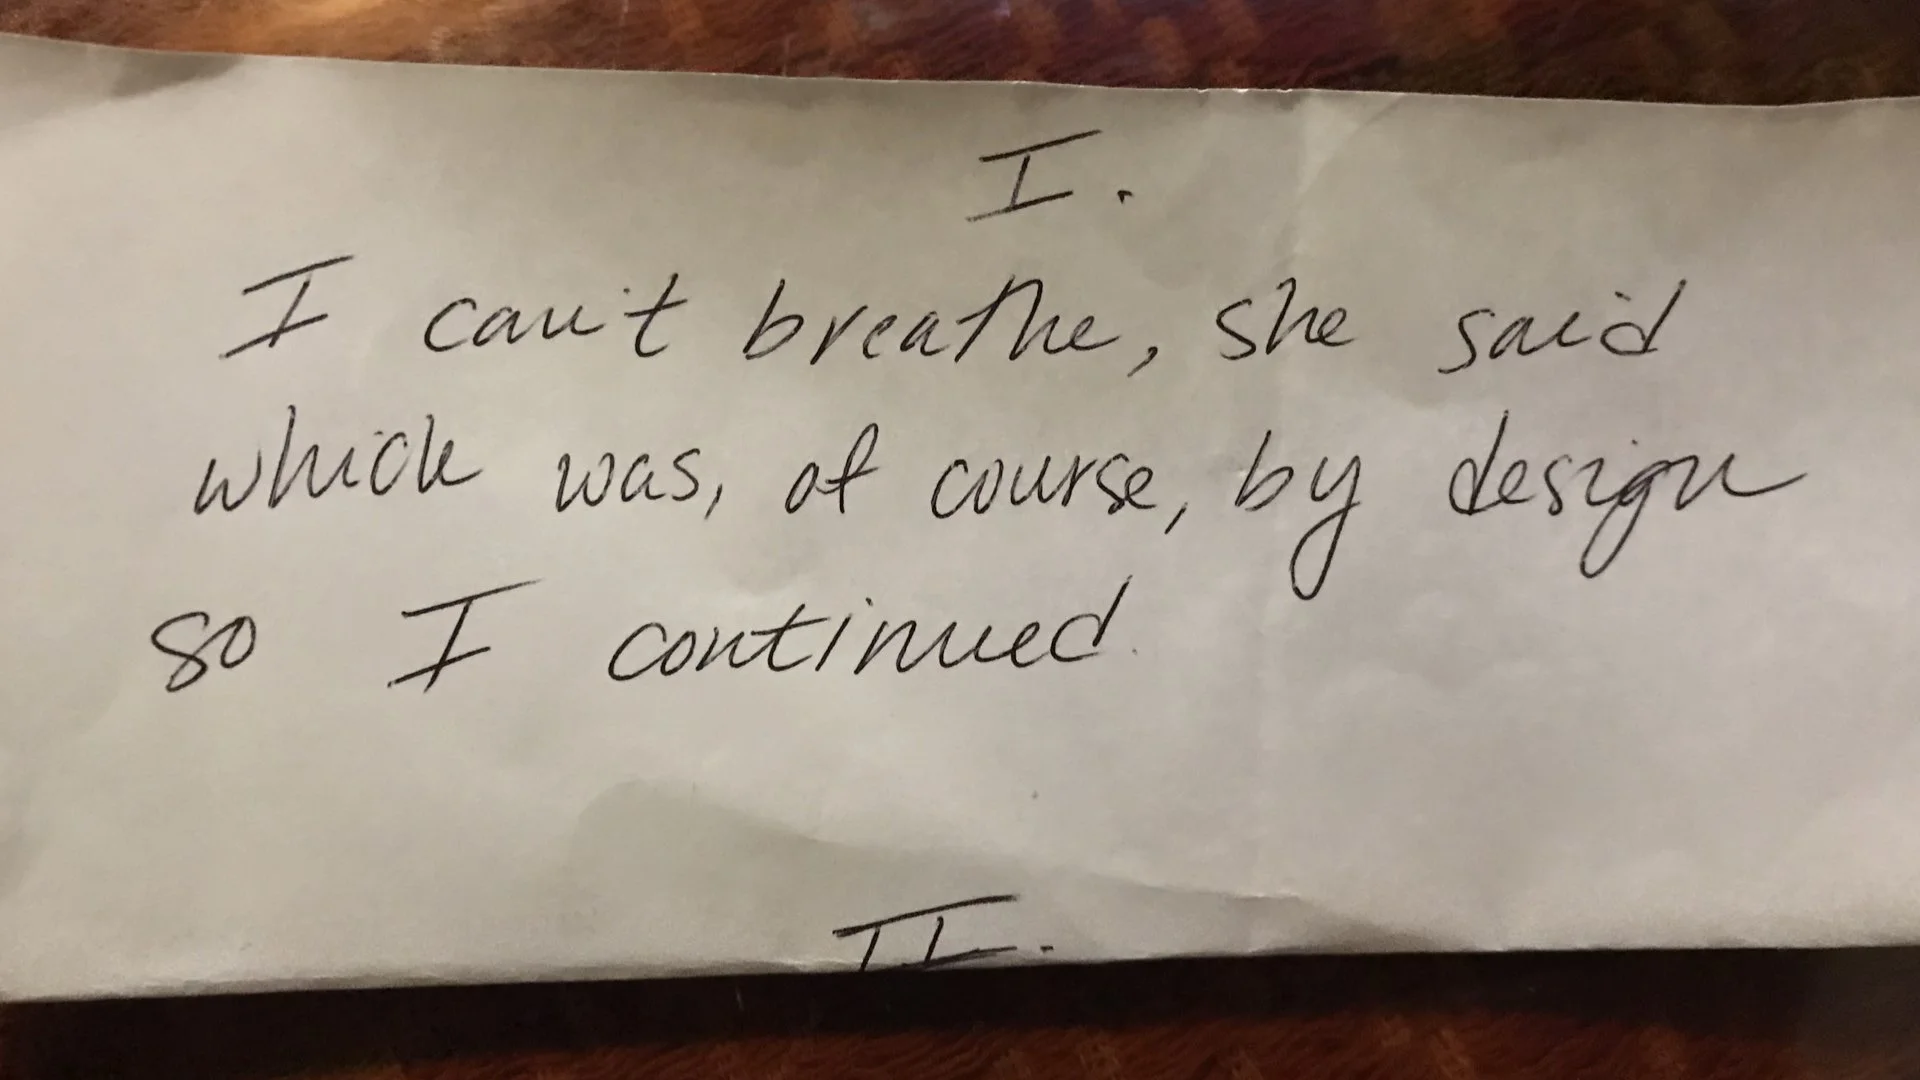 I.
I can't breathe, she said
which was, of course, by design
so I continued.
II.